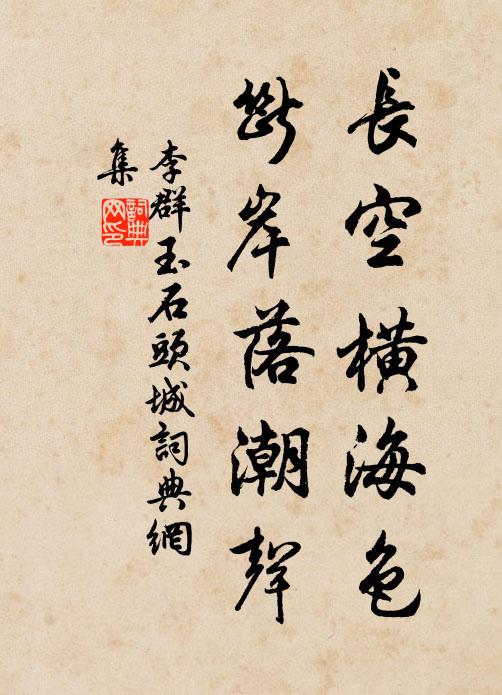 長空橫海色
斷岸落潮聲
李群玉石頭城詞典網
集
詞典網印